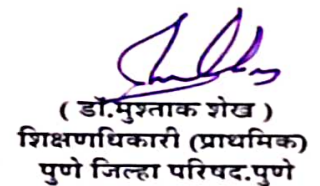 ( डॉ.मुश्ताक शेख )
शिक्षणाधिकारी (प्राथमिक)
पुणे जिल्हा परिषद.पुणे